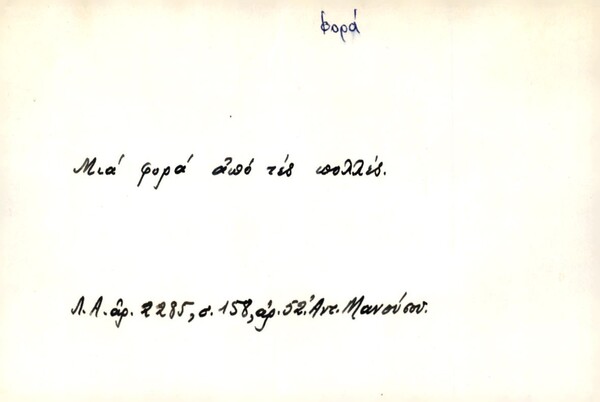 φορά
Μιά φορά ἀπό τές πολλές.
Λ.Α. ἀρ. 2285, σ. 158, ἀρ. 52. Ἀντ. Μανούσου.